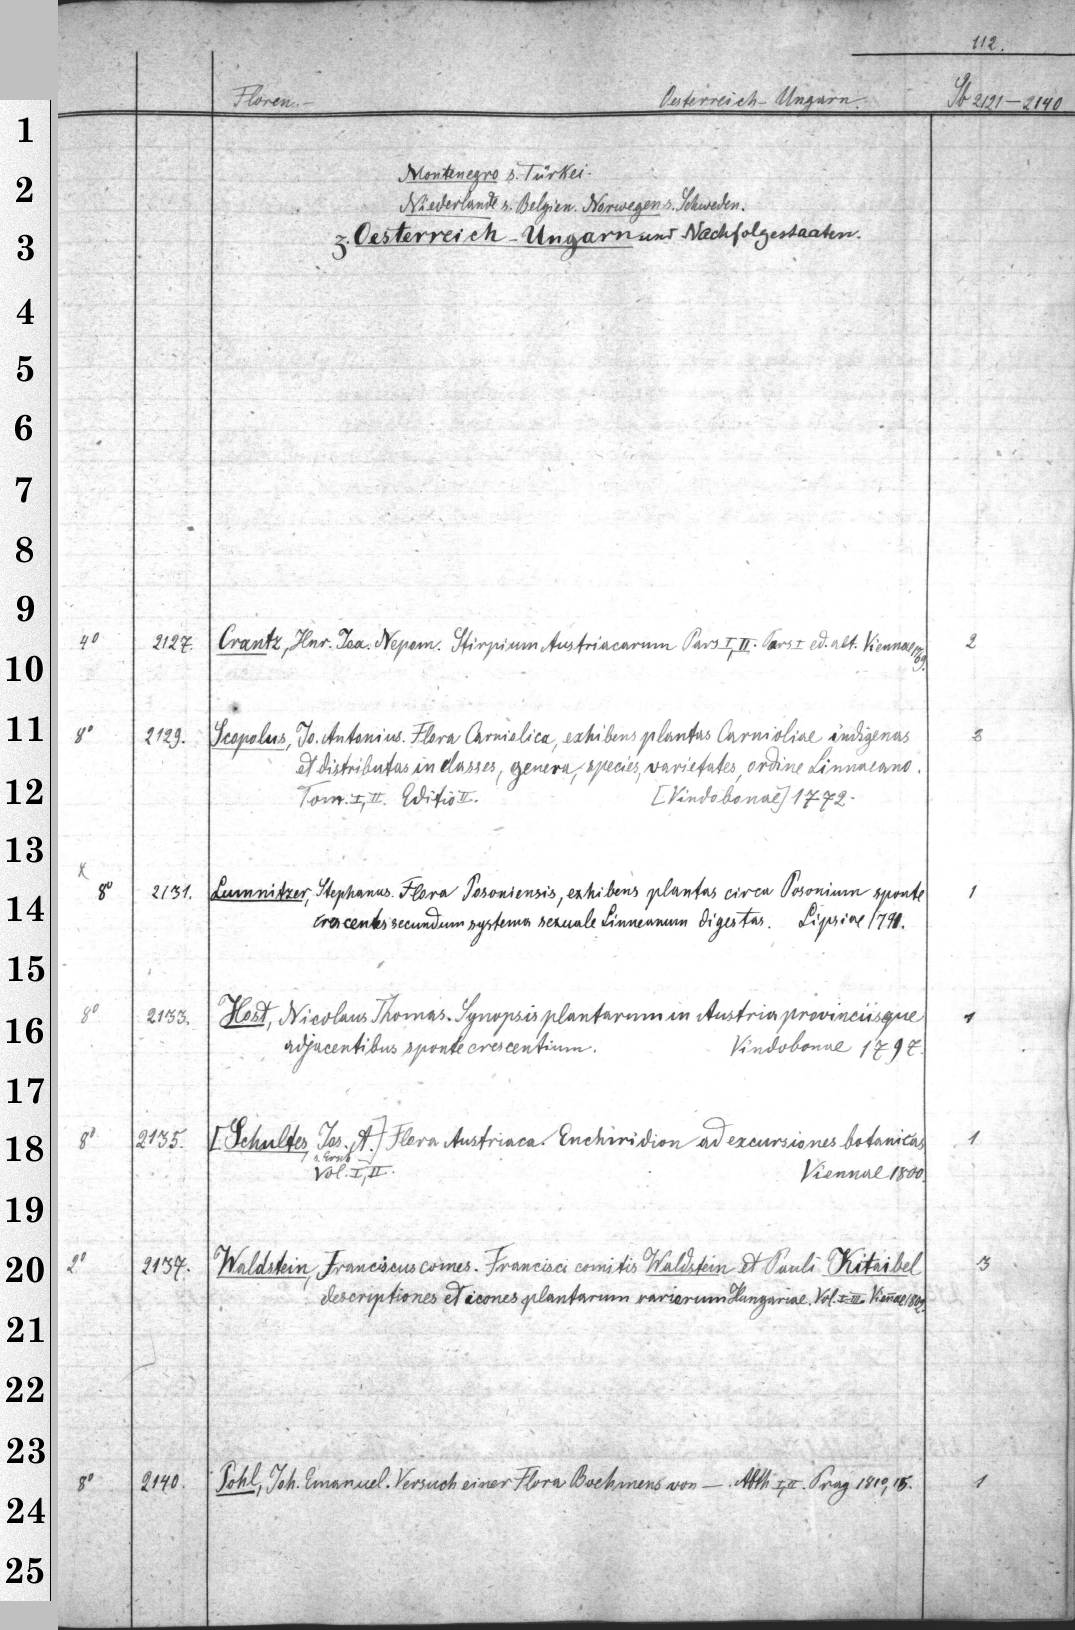 112.
Floren. – Oesterreich-Ungarn. Sb 2121–2140
Montenegro s. Türkei.
Niederlande s. Belgien. Norwegen s. Schweden.
z. Oesterreich-Ungarn und Nachfolgestaaten.
4° 2127. Crantz, Hnr. Joa. Nepom. Stirpium Austriacarum Pars I, II. Pars I ed. alt. Viennae 1769. 2
8° 2129. Scopolus, Jo. Antonius. Flora Carniolica, exhibens plantas Carnioliae indigenas 2
et distributas in classes, genera, species, varietates, ordine Linnaeano.
Tom. I, II. Editio II. [Vindobonae] 1772.
x
8° 2131. Lumnitzer, Stephanus. Flora Posoniensis, exhibens plantas circa Posonium sponte 1
crescentes secundum systema sexuale Linneanum digestas. Lipsiae 1791.
8° 2133. Host, Nicolaus Thomas. Synopsis plantarum in Austria provinciisque 1
adjacentibus sponte crescentium. Vindobonae 1797.
8° 2135. [Schultes, Jos. A.] Flora Austriaca. Enchiridion ad excursiones botanicas 1
Vol. I, II. Viennae 1800.
2° 2137. Waldstein, Franciscus comes. Francisci comitis Waldstein et Pauli Kitaibel 3
descriptiones et icones plantarum rariorum Hungariae. Vol. I–III. Vieñae 1802.
8° 2140. Pohl, Joh. Emanuel. Versuch einer Flora Boehmens von —. Abth I, II. Prag 1810, 15. 1
1
2
3
4
5
6
7
8
9
10
11
12
13
14
15
16
17
18
19
20
21
22
23
24
25